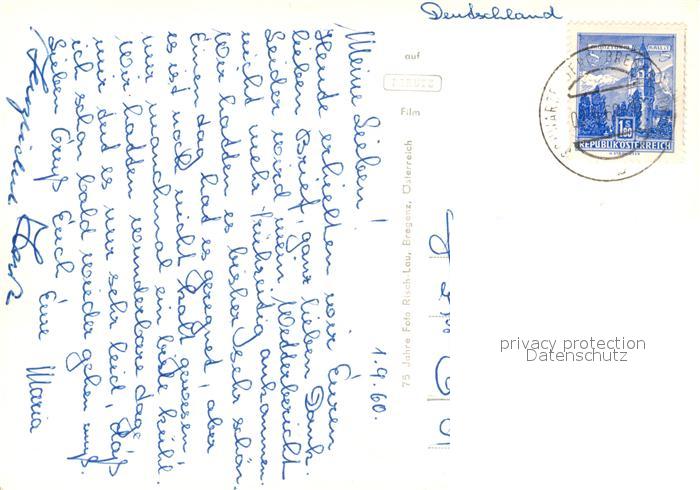 Deutschland
1.9.60.
Meine Lieben!
Heute erhielten wir Euren
lieben Brief, ganz lieben Dank.
Leider wird mein Wetterbericht
nicht mehr frühzeitig ankommen.
Wir hatten es bisher sehr schön.
Einen Tag hat es geregnet, aber
es ist noch nicht kalt gewesen,
nur manchmal ein bisle kühl.
Wir hatten wunderbare Tage
mir tut es nur sehr leid, daß
ich schon bald wieder gehen muß.
Lieben Gruß Euch Eure Maria
Herzlichst
auf
Film
75 Jahre Foto Risch-Lau, Bregenz, Österreich
REPUBLIK ÖSTERREICH
privacy protection
Datenschutz